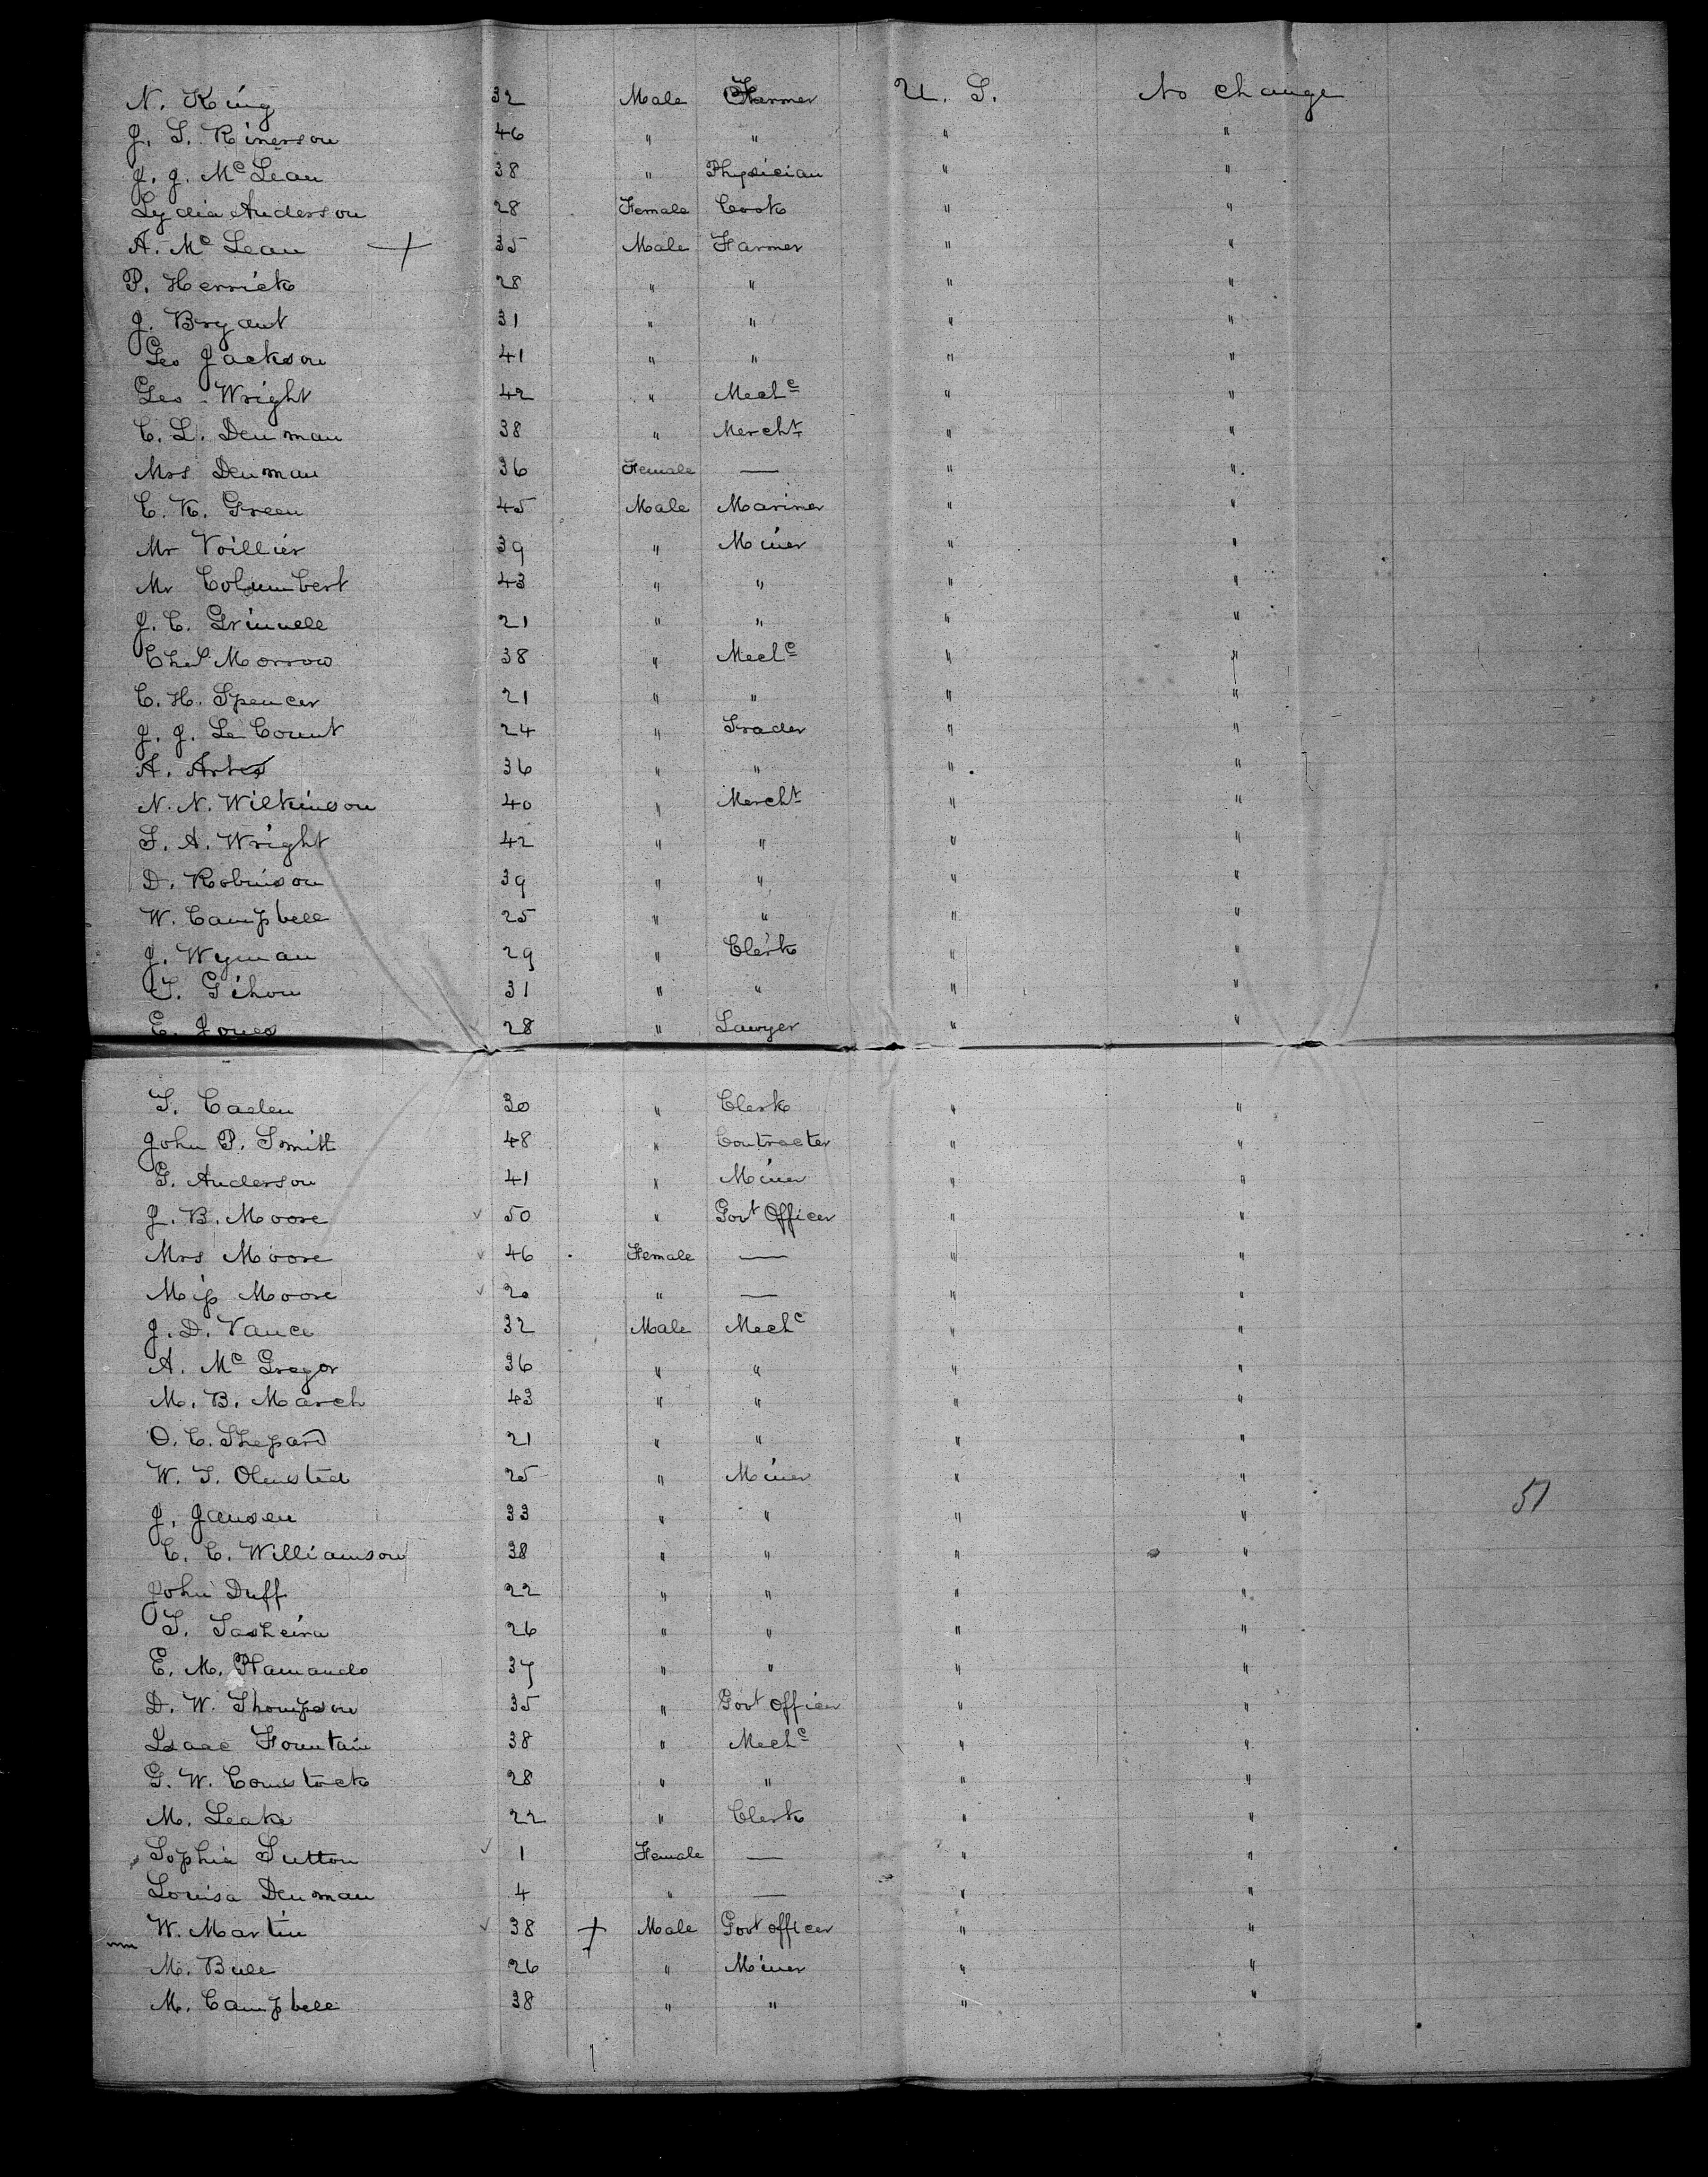 N. King 32 Male Farmer U. S. No change
J. S. Rinerson 46 " " " "
J. J. McLean 38 " Physician " "
Lydia Anderson 28 Female Cook " "
A. McLean + 35 Male Farmer " "
P. Herrick 28 " " " "
J. Bryant 31 " " " "
Geo Jackson 41 " " " "
Geo. Wright 42 " Mechc " "
C. L. Denman 38 " Mercht " "
Mrs Denman 36 Female — " "
C. K. Green 45 Male Mariner " "
Mr Voillier 39 " Miner " "
Mr Columbert 43 " " " "
J. C. Grinnell 21 " " " "
Chas Morrow 38 " Mechc " "
C. H. Spencer 21 " " " "
J. J. Le Count 24 " Trader " "
A. 36 " " " "
N. N. Wilkinson 40 " Mercht " "
S. A. Wright 42 " " " "
D. Robinson 39 " " " "
W. Campbell 25 " " " "
J. Wyman 29 " Clerk " "
T. Gihon 31 " " " "
E. Jones 28 " Lawyer " "
T. Caden 30 " Clerk " "
John P. Smith 48 " Contracter " "
G. Anderson 41 " Miner " "
J. B. Moore 50 " Govt Officer " "
Mrs Moore 46 Female — " "
Miss Moore 20 " — " "
J. D. Vance 32 Male Mechc " "
A. McGregor 36 " " " "
M. B. March 43 " " " "
O. C. Shepard 21 " " " "
W. T. Olmsted 25 " Miner " "
J. Jansen 33 " " " " 51
C. C. Williamson 38 " " " "
John Duff 22 " " " "
T. Tasheira 26 " " " "
E. M. 37 " " " "
D. W. Thompson 35 " Govt Officer " "
Isaac Fountain 38 " Mechc " "
G. W. Comstock 28 " " " "
M. Leake 22 " Clerk " "
Sophia Sutton 1 Female — " "
Louisa Denman 4 " — " "
W. Martin 38 + Male Govt officer " "
M. Bull 26 " Miner " "
M. Campbell 38 " " " "